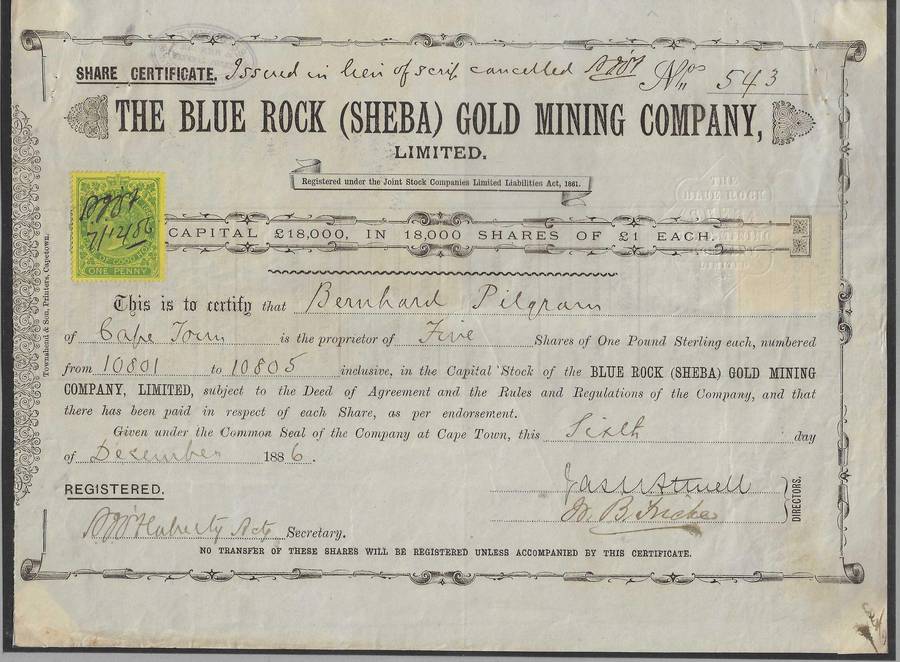 SHARE CERTIFICATE. Issued in lieu of scrip cancelled Nos 543
THE BLUE ROCK (SHEBA) GOLD MINING COMPANY,
LIMITED.
Registered under the Joint Stock Companies Limited Liabilities Act, 1861.
THE
BLUE ROCK
LIMITED
7/12/86
OF GOOD
ONE PENNY
CAPITAL £18,000, IN 18,000 SHARES OF £1 EACH.
This is to certify that Bernhard Pilgram
of Cape Town is the proprietor of Five Shares of One Pound Sterling each, numbered
from 10801 to 10805 inclusive, in the Capital Stock of the BLUE ROCK (SHEBA) GOLD MINING
COMPANY, LIMITED, subject to the Deed of Agreement and the Rules and Regulations of the Company, and that
there has been paid in respect of each Share, as per endorsement.
Given under the Common Seal of the Company at Cape Town, this Sixth day
of December 1886.
REGISTERED.
O'Flaherty Actg Secretary.
DIRECTORS.
NO TRANSFER OF THESE SHARES WILL BE REGISTERED UNLESS ACCOMPANIED BY THIS CERTIFICATE.
Townshend & Son, Printers, Capetown.